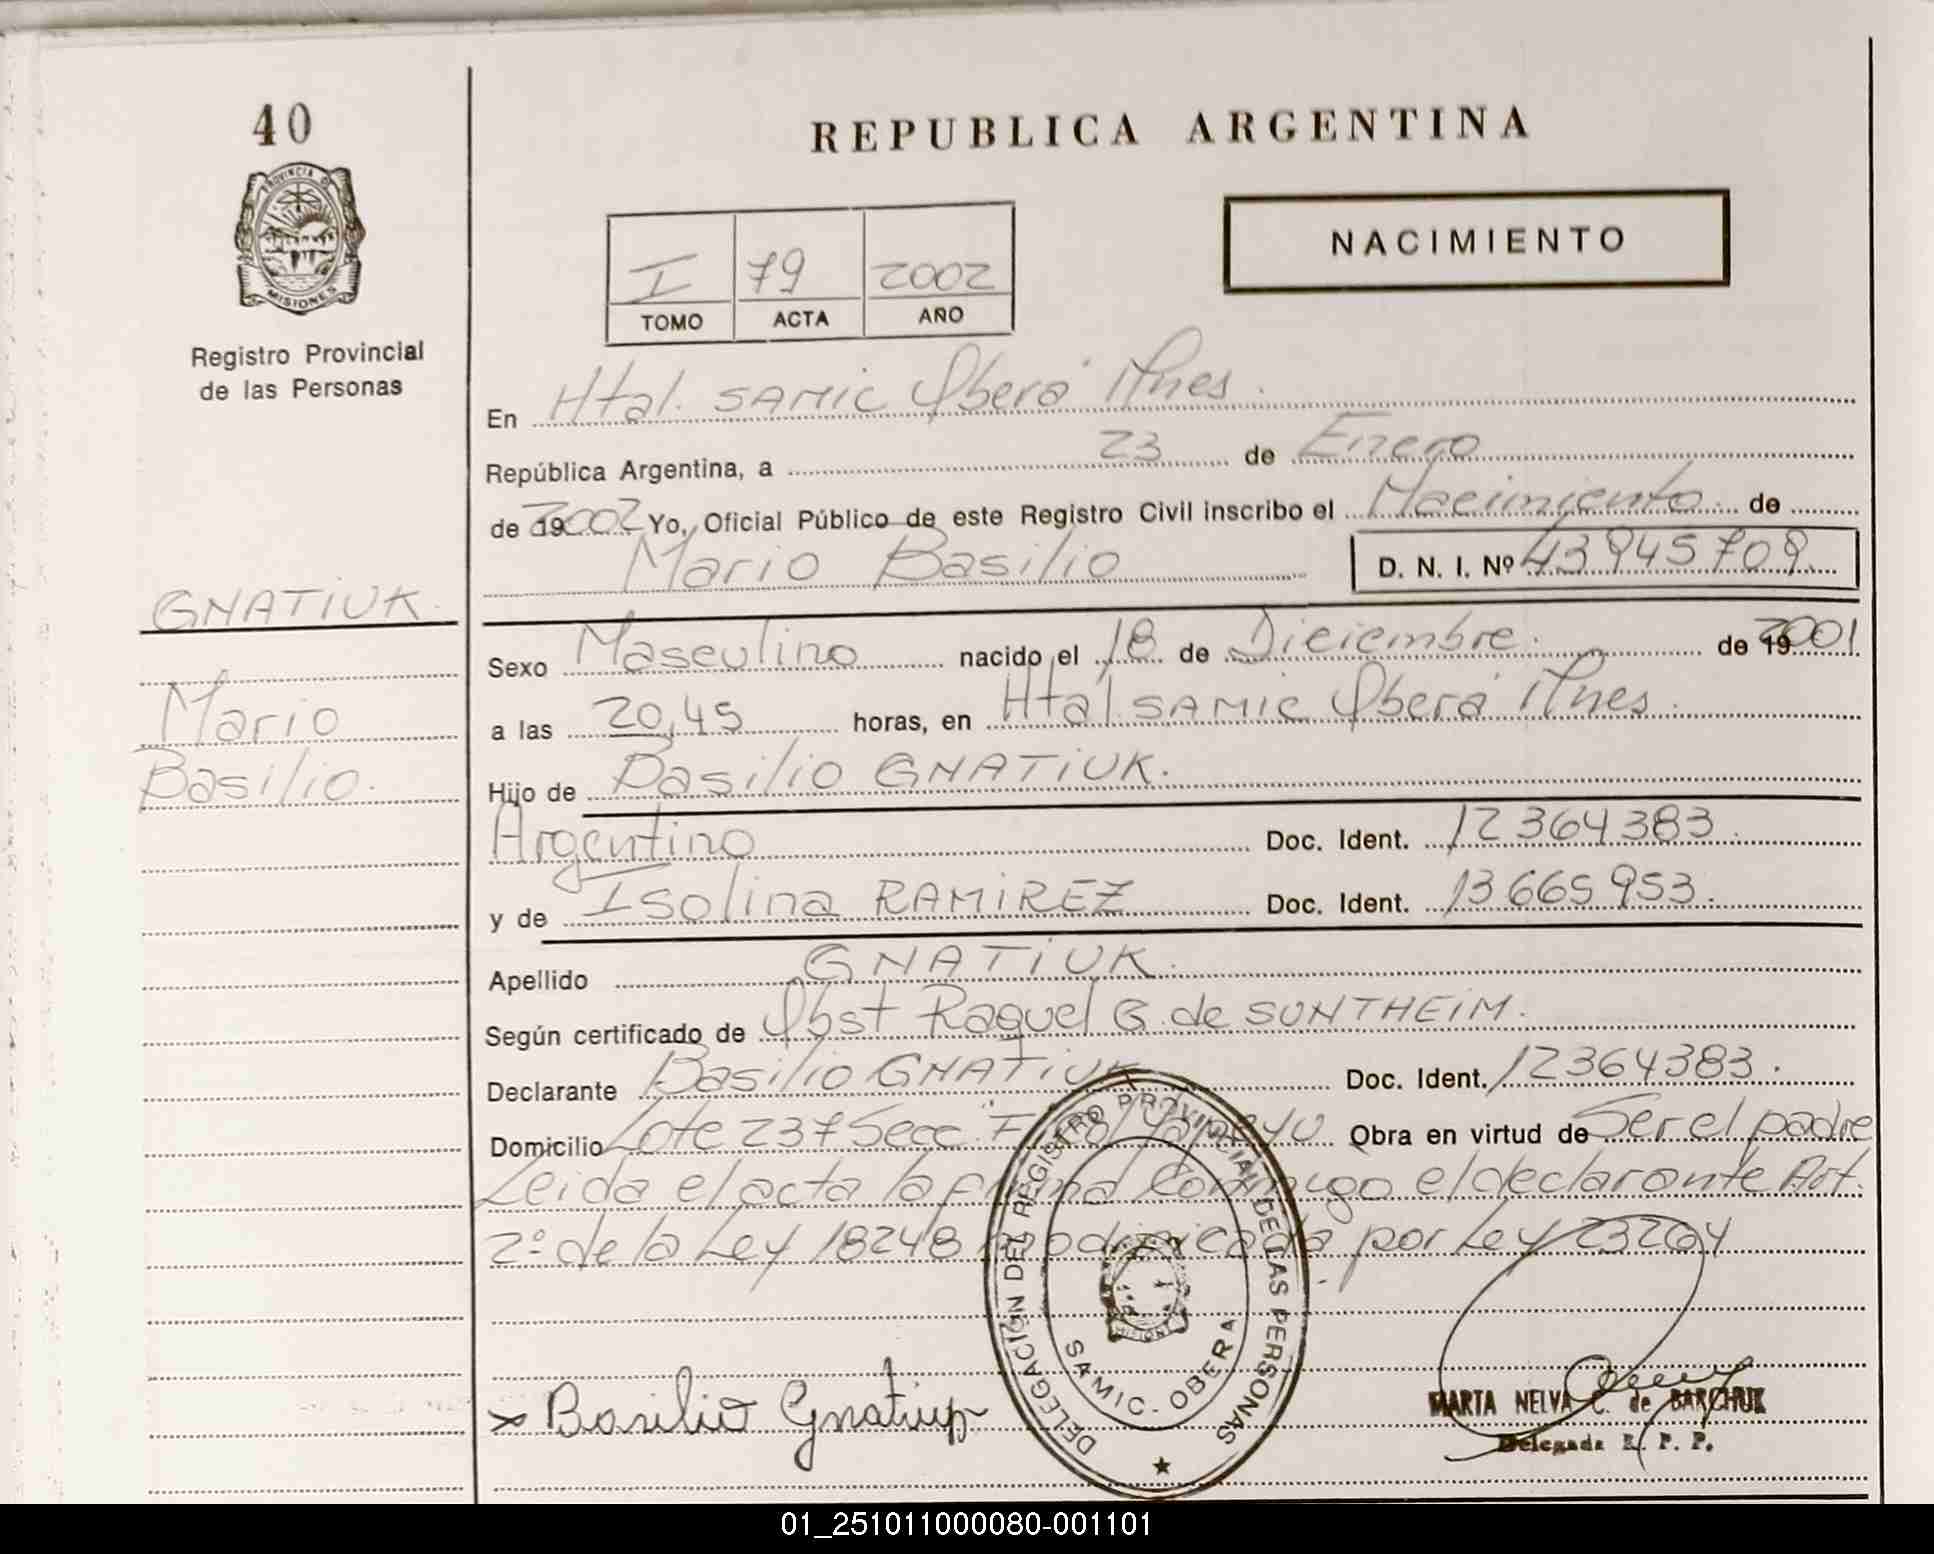 40
PROVINCIA DE
MISIONES
Registro Provincial
de las Personas
REPUBLICA ARGENTINA
NACIMIENTO
I 79 2002
TOMO ACTA AÑO
En Htal. SAMIC Oberá Mnes.
República Argentina, a 23 de Enero
de 19 2002 Yo, Oficial Público de este Registro Civil inscribo el Nacimiento de
Mario Basilio D. N. I. Nº 43945709
GNATIUK.
Mario
Basilio.
Sexo Masculino nacido el 18 de Diciembre. de 19 2001
a las 20,45 horas, en Htal SAMIC Oberá Mnes.
Hijo de Basilio GNATIUK.
Argentino Doc. Ident. 12364383.
y de Isolina RAMIREZ Doc. Ident. 13665953.
Apellido GNATIUK.
Según certificado de Obst Raquel G. de SUNTHEIM.
Declarante Basilio GNATIUK Doc. Ident. 12364383.
Domicilio Lote 237 Secc. Obra en virtud de Ser el padre
Leida el acta la firma Conmigo el declarante Art.
2º de la Ley 18248 modificada por Ley 23264
DELEGACIÓN DEL REGISTRO PROVINCIAL DE LAS PERSONAS
MISIONES
SAMIC - OBERA
x Basilio Gnatiuk
MARTA NELVA C. de BARCHUK
Delegada R. P. P.
01_251011000080-001101